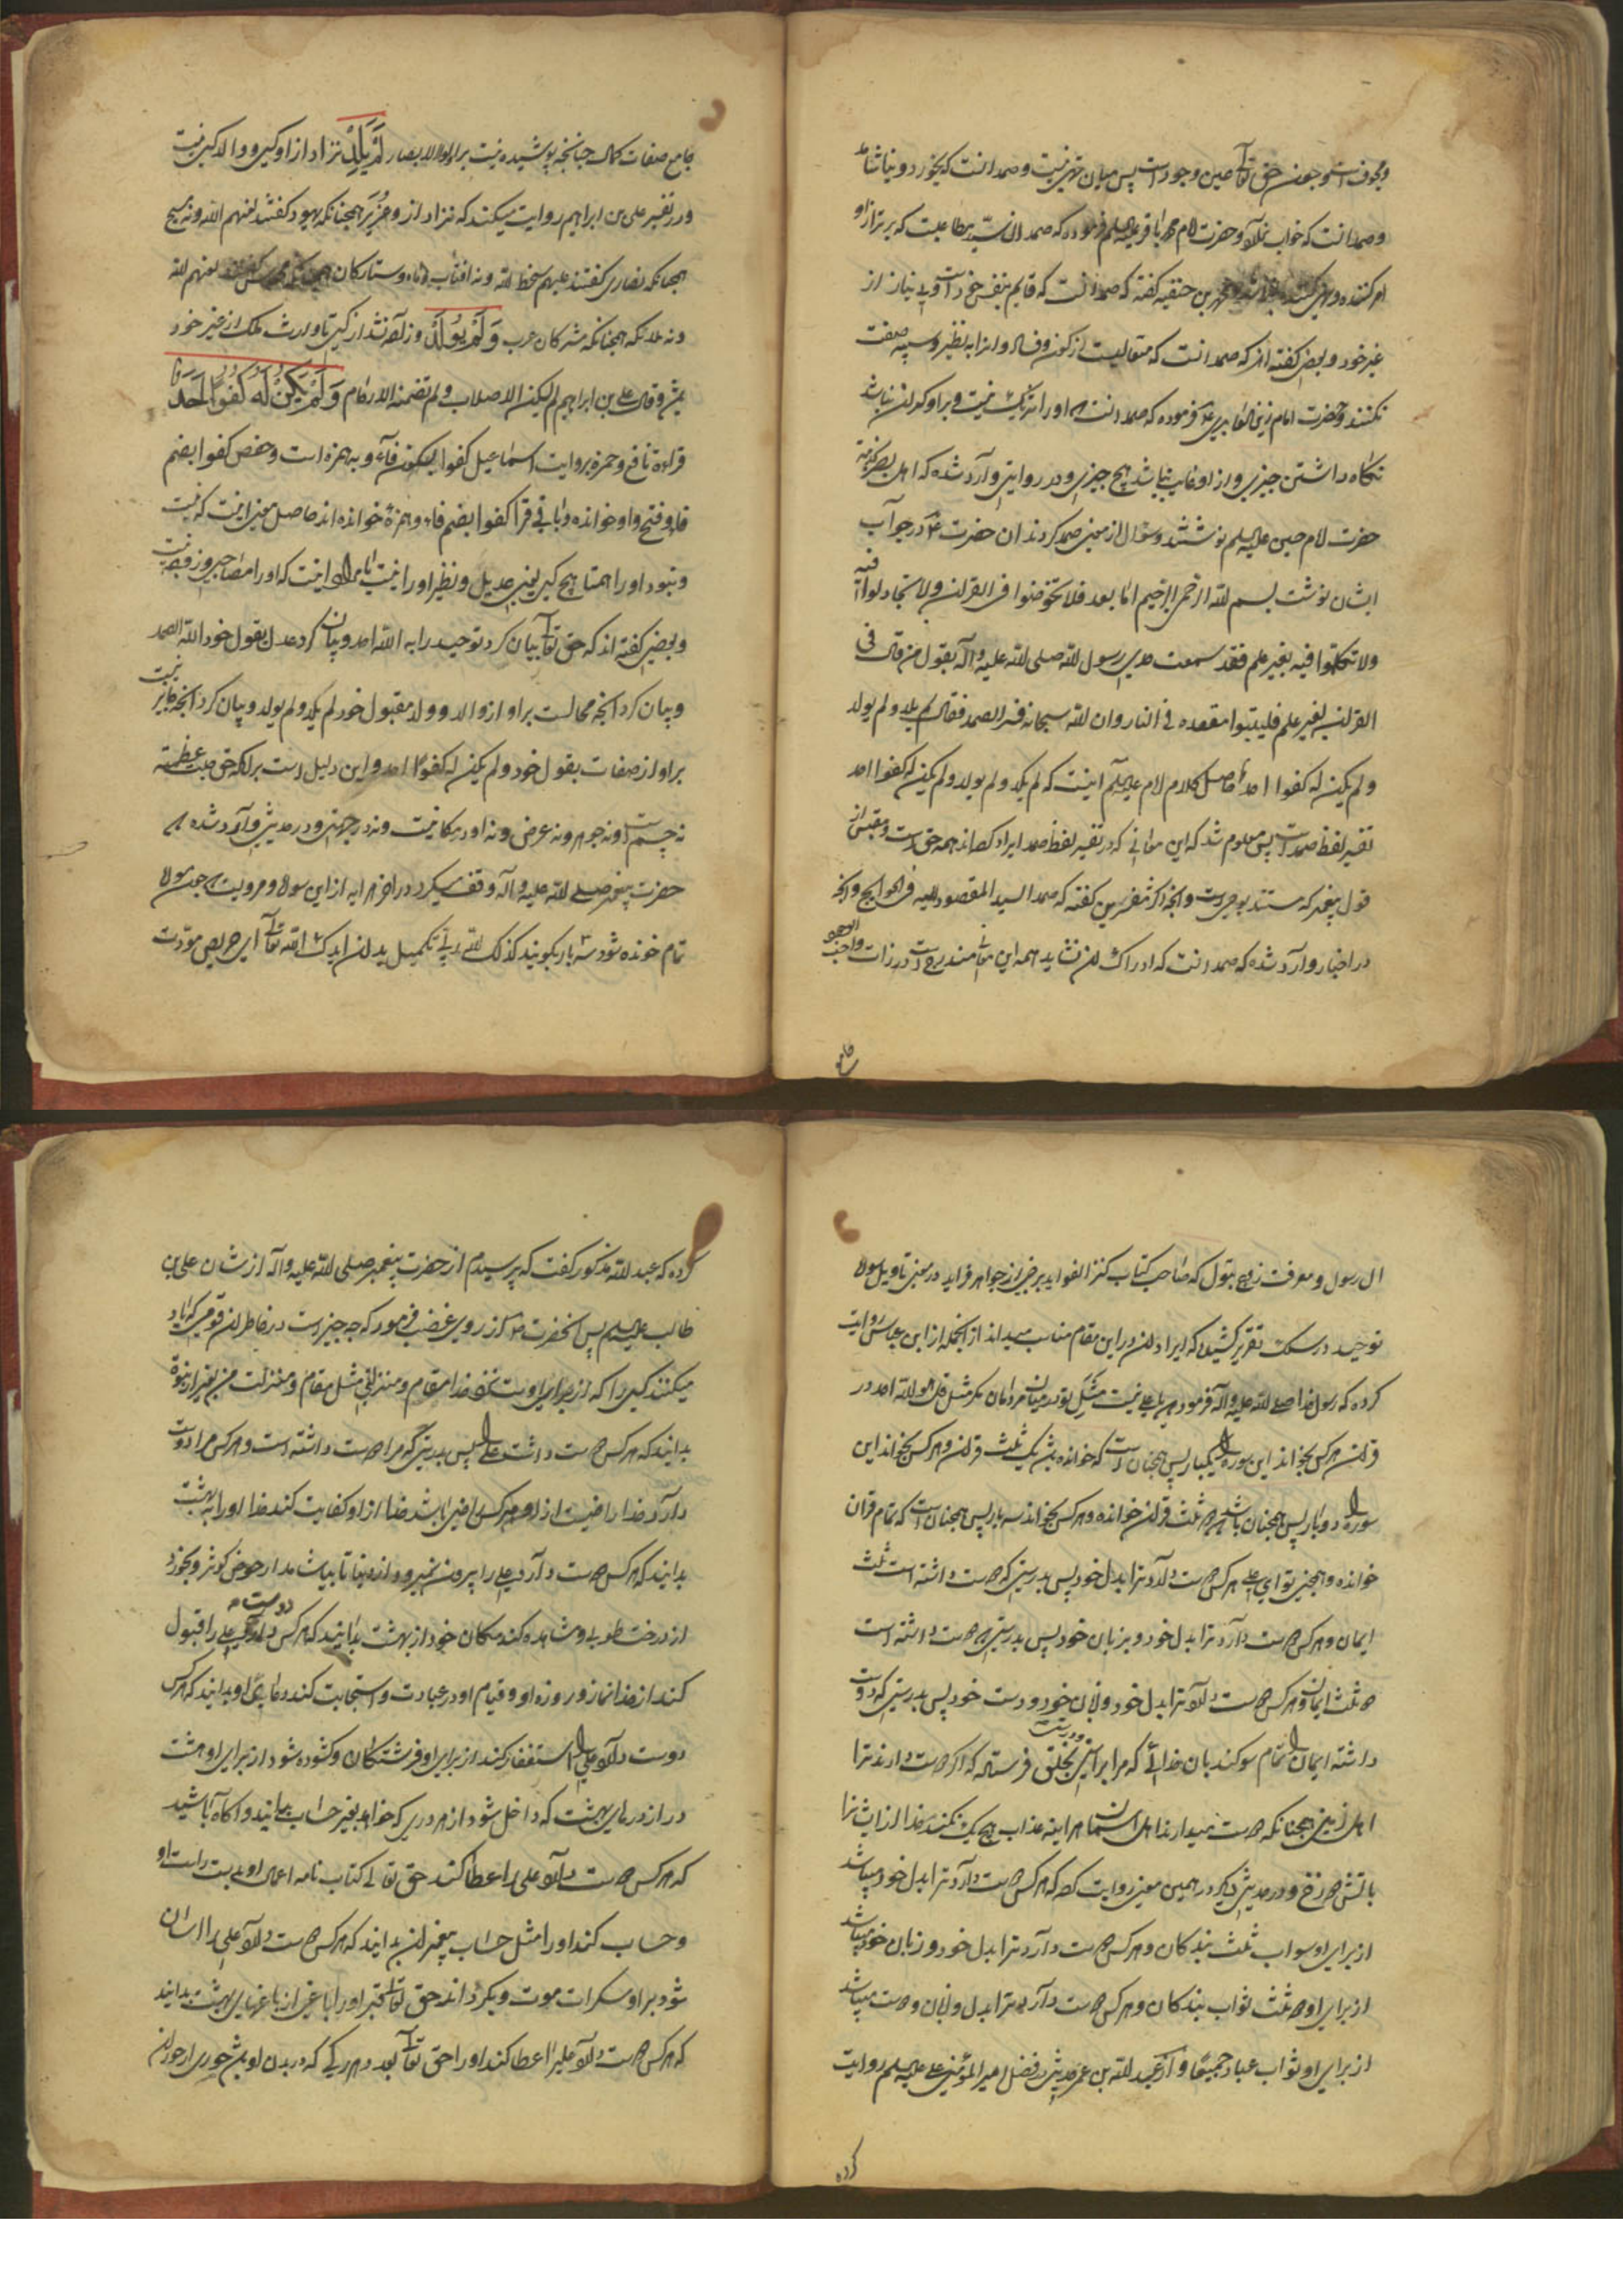 و مجوف است و چون حق تعالی عین وجود است پس میان تهی نیست و صمد آنست که نخورد و نیاشامد
و صمد آنست که خواب نکند و حضرت امام محمد باقر علیه السلم فرموده که صمد آن سید مطاعیست که برتر از او
امر کننده و نهی کننده نباشد و محمد بن حنفیه گفته که صمد آنست که قایم بنفس خود است و بی نیاز از
غیر خود و بعضی گفته اند که صمد آنست که متعالیست از کون و فساد و او را به نظیر و شبیه صفت
نکنند و حضرت امام زین العابدین ع فرموده که صمد آنست که او را شریک نیست و بر او گران نباشد
نگاه داشتن چیزی و از او غایب نباشد هیچ چیزی و در روایتی وارد شده که اهل بصره نزد
حضرت امام حسین علیه السلم نوشتند و سؤال از معنی صمد کردند آن حضرت ع در جواب
ایشان نوشت بسم الله الرحمن الرحیم اما بعد فلا تخوضوا فی القران و لا تجادلوا فیه
و لا تتکلموا فیه بغیر علم فقد سمعت جدی رسول الله صلی الله علیه و آله یقول من قال فی
القران بغیر علم فلیتبوا مقعده فی النار و ان الله سبحانه فسر الصمد فقال لم یلد و لم یولد
و لم یکن له کفوا احد حاصل کلام امام علیه السلم اینست که لم یلد و لم یولد و لم یکن له کفوا احد
تفسیر لفظ صمد است پس معلوم شد که این معانی که در تفسیر لفظ صمد ایراد کرده اند همه حق است و مقتبس از
قول پیغمبر که مستند بوحی است و آنچه اکثر مفسرین گفته که صمد السید المقصود الیه فی الحوایج و آنچه
در اخبار وارد شده که صمد آنست که ادراک آن نشاید همه این معانی مندرج است در ذات واجب الوجود
جامع
جامع صفات کمال چنانچه پوشیده نیست بر اولو الابصار لَمْ یَلِدْ نزاد از او کسی و والد کسی نیست
و در تفسیر علی بن ابراهیم روایت میکنند که نزاد از او عزیر همچنانکه یهود گفتند لعنهم الله و نه مسیح
همچنانکه نصاری گفتند علیهم سخط الله و نه آفتاب و ماه و ستارگان همچنانکه مجوس گفتند لعنهم الله
و نه ملائکه همچنانکه مشرکان عرب وَ لَمْ یُولَدْ و زاده نشد از کسی تا وارث ملک از غیر خود
بشد و قال علی بن ابراهیم لم یسکن الاصلاب و لم تضمنه الارحام وَ لَمْ یَکُنْ لَهُ کُفُوًا اَحَدٌ
قراءة نافع و حمزه بروایت اسماعیل کفوا بسکون فآء و به همزه است و حفص کفوا بضم
فاء و فتح واو خوانده و باقی قرآ کفوا بضم فاء و همزه خوانده اند حاصل معنی اینست که نیست
و نبود او را همتا هیچ کس یعنی عدیل و نظیر او را نیست یا مراد اینست که او را مصاحبی و زوجه نیست
و بعضی گفته اند که حق تعالی بیان کرد توحید را به الله احد و بیان کرد عدل بقول خود الله الصمد
و بیان کرد آنچه محالست بر او از والد و ولد بقول خود لم یلد و لم یولد و بیان کرد آنچه جایز نیست
بر او از صفات بقول خود و لم یکن له کفوا احد و این دلیل است بر آنکه حق جلت عظمته
نه جسم است و نه جوهر و نه عرض و نه او در مکانیست و نه در جهتی و در حدیثی وارد شده که
حضرت پیغمبر صلی الله علیه و آله وقف میکرد در آخر هر ایه از این سوره و مرویست که چون سوره
تمام خوانده شود سه بار بگویند کذلک الله ربی تکمیل بدان ایدک الله تعالی ای حریص مودت
ال رسول و معرفت زوج بتول که صاحب کتاب کنز الفواید برخی از جواهر فراید در معنی تاویل سوره
توحید در سلک تقریر کشیده که ایراد آن در این مقام مناسب میداند از انجمله از ابن عباس روایت
کرده که رسول خدا صلی الله علیه و آله فرمود یا علی نیست مثل تو در میان مردمان مگر مثل قل هو الله احد در
قران هر کس بخواند این سوره را یکبار پس همچنان است که خوانده باشد یک ثلث قران و هر کس بخواند این
سوره را دو بار پس همچنان باشد که دو ثلث قران خوانده و هر کس بخواند سه بار پس همچنان است که تمام قران
خوانده و همچنین تو ای علی هر کس دوست دارد ترا بدل خود پس بدرستی که دوست داشته است ثلث
ایمان و هر کس دوست دارد ترا بدل خود و بزبان خود پس بدرستی که دوست داشته است
دو ثلث ایمان و هر کس دوست دارد ترا بدل خود و زبان خود و دست خود پس بدرستی که دوست
داشته ایمان را تمام سوگند بان خدائی که مرا براستی و درستی بخلق فرستاده که اگر دوست دارند ترا
اهل زمین همچنانکه دوست میدارند اهل آسمان هر اینه عذاب هیچ یک نکند خدا از ایشان را
باتش دوزخ و در حدیثی دیگر در همین معنی روایت کرده که هر کس دوست دارد ترا بدل خود میباشد
از برای او ثواب ثلث بندگان و هر کس دوست دارد ترا بدل خود و زبان خود میباشد
از برای او دو ثلث ثواب بندگان و هر کس دوست دارد ترا بدل و زبان و دست میباشد
از برای او ثواب عباد جمیعا و از عبد الله بن عمر حدیثی در فضل امیر المؤمنین علی علیه السلم روایت
کرده
کرده که عبد الله مذکور گفت که پرسیدم از حضرت پیغمبر صلی الله علیه و آله از شان علی بن
طالب علیه السلم پس آنحضرت از روی غضب فرمود که چه چیز است در خاطر آن قومی که یاد
میکنند کسی را که از برای اوست نزد خدا مقام و منزلتی مثل مقام و منزلت من بغیر از نبوة
بدانید که هر کس دوست داشت علی را پس بدرستی که مرا دوست داشته است و هر کس مرا دوست
دارد خدا راضیست از او و هر کس راضی باشد خدا از او کفایت کند خدا او را به بهشت
بدانید که هر کس دوست دارد علی را بیرون نمیرود از دنیا تا بیاشامد از حوض کوثر و بخورد
از درخت طوبی و مشاهده کند مکان خود از بهشت بدانید که هر کس دوست دارد علی را قبول
کند از خدا نماز و روزه او و قیام او در عبادت و استجابت کند دعای او بدانید که هر کس
دوست دارد علی را استغفار کنند از برای او فرشتگان و گشوده شود از برای او هشت
در از درهای بهشت که داخل شود از هر دری که خواهد بغیر حساب بدانید و آگاه باشید
که هر کس دوست دارد علی را عطا کند حق تعالی کتاب نامه اعمال او بدست راست او
و حساب کند او را مثل حساب پیغمبران بدانید که هر کس دوست دارد علی را آسان
شود بر او سکرات موت و بگرداند حق تعالی قبر او را باغی از باغهای بهشت بدانید
که هر کس دوست دارد علی را عطا کند او را حق تعالی بعدد هر رگی که در بدن او باشد حوری از حوران